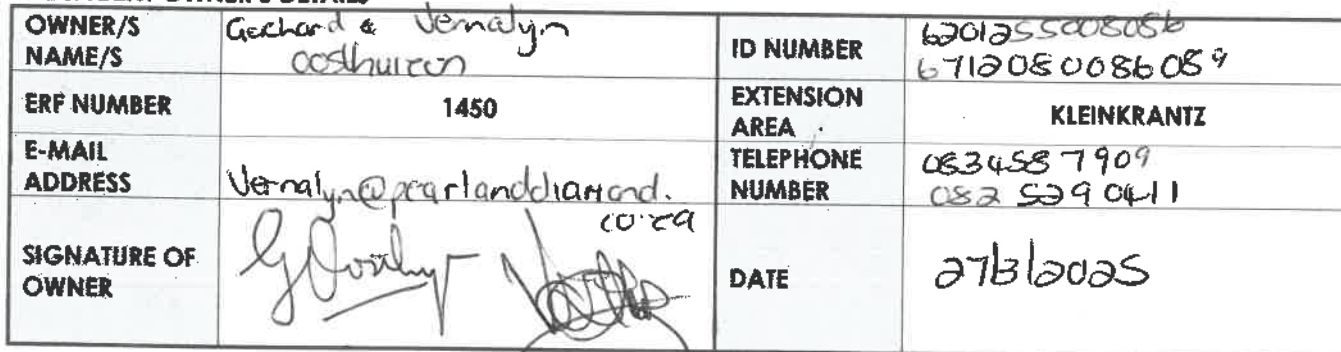 OWNER/S NAME/S
Gerhard & Vernalyn
Oosthuizen
ID NUMBER
6201255008086
6712080086089
ERF NUMBER
1450
EXTENSION AREA
KLEINKRANTZ
E-MAIL ADDRESS
Vernalyn@pearlanddiamond.
co.za
TELEPHONE NUMBER
0834587909
082 5290411
SIGNATURE OF OWNER
DATE
27/3/2025